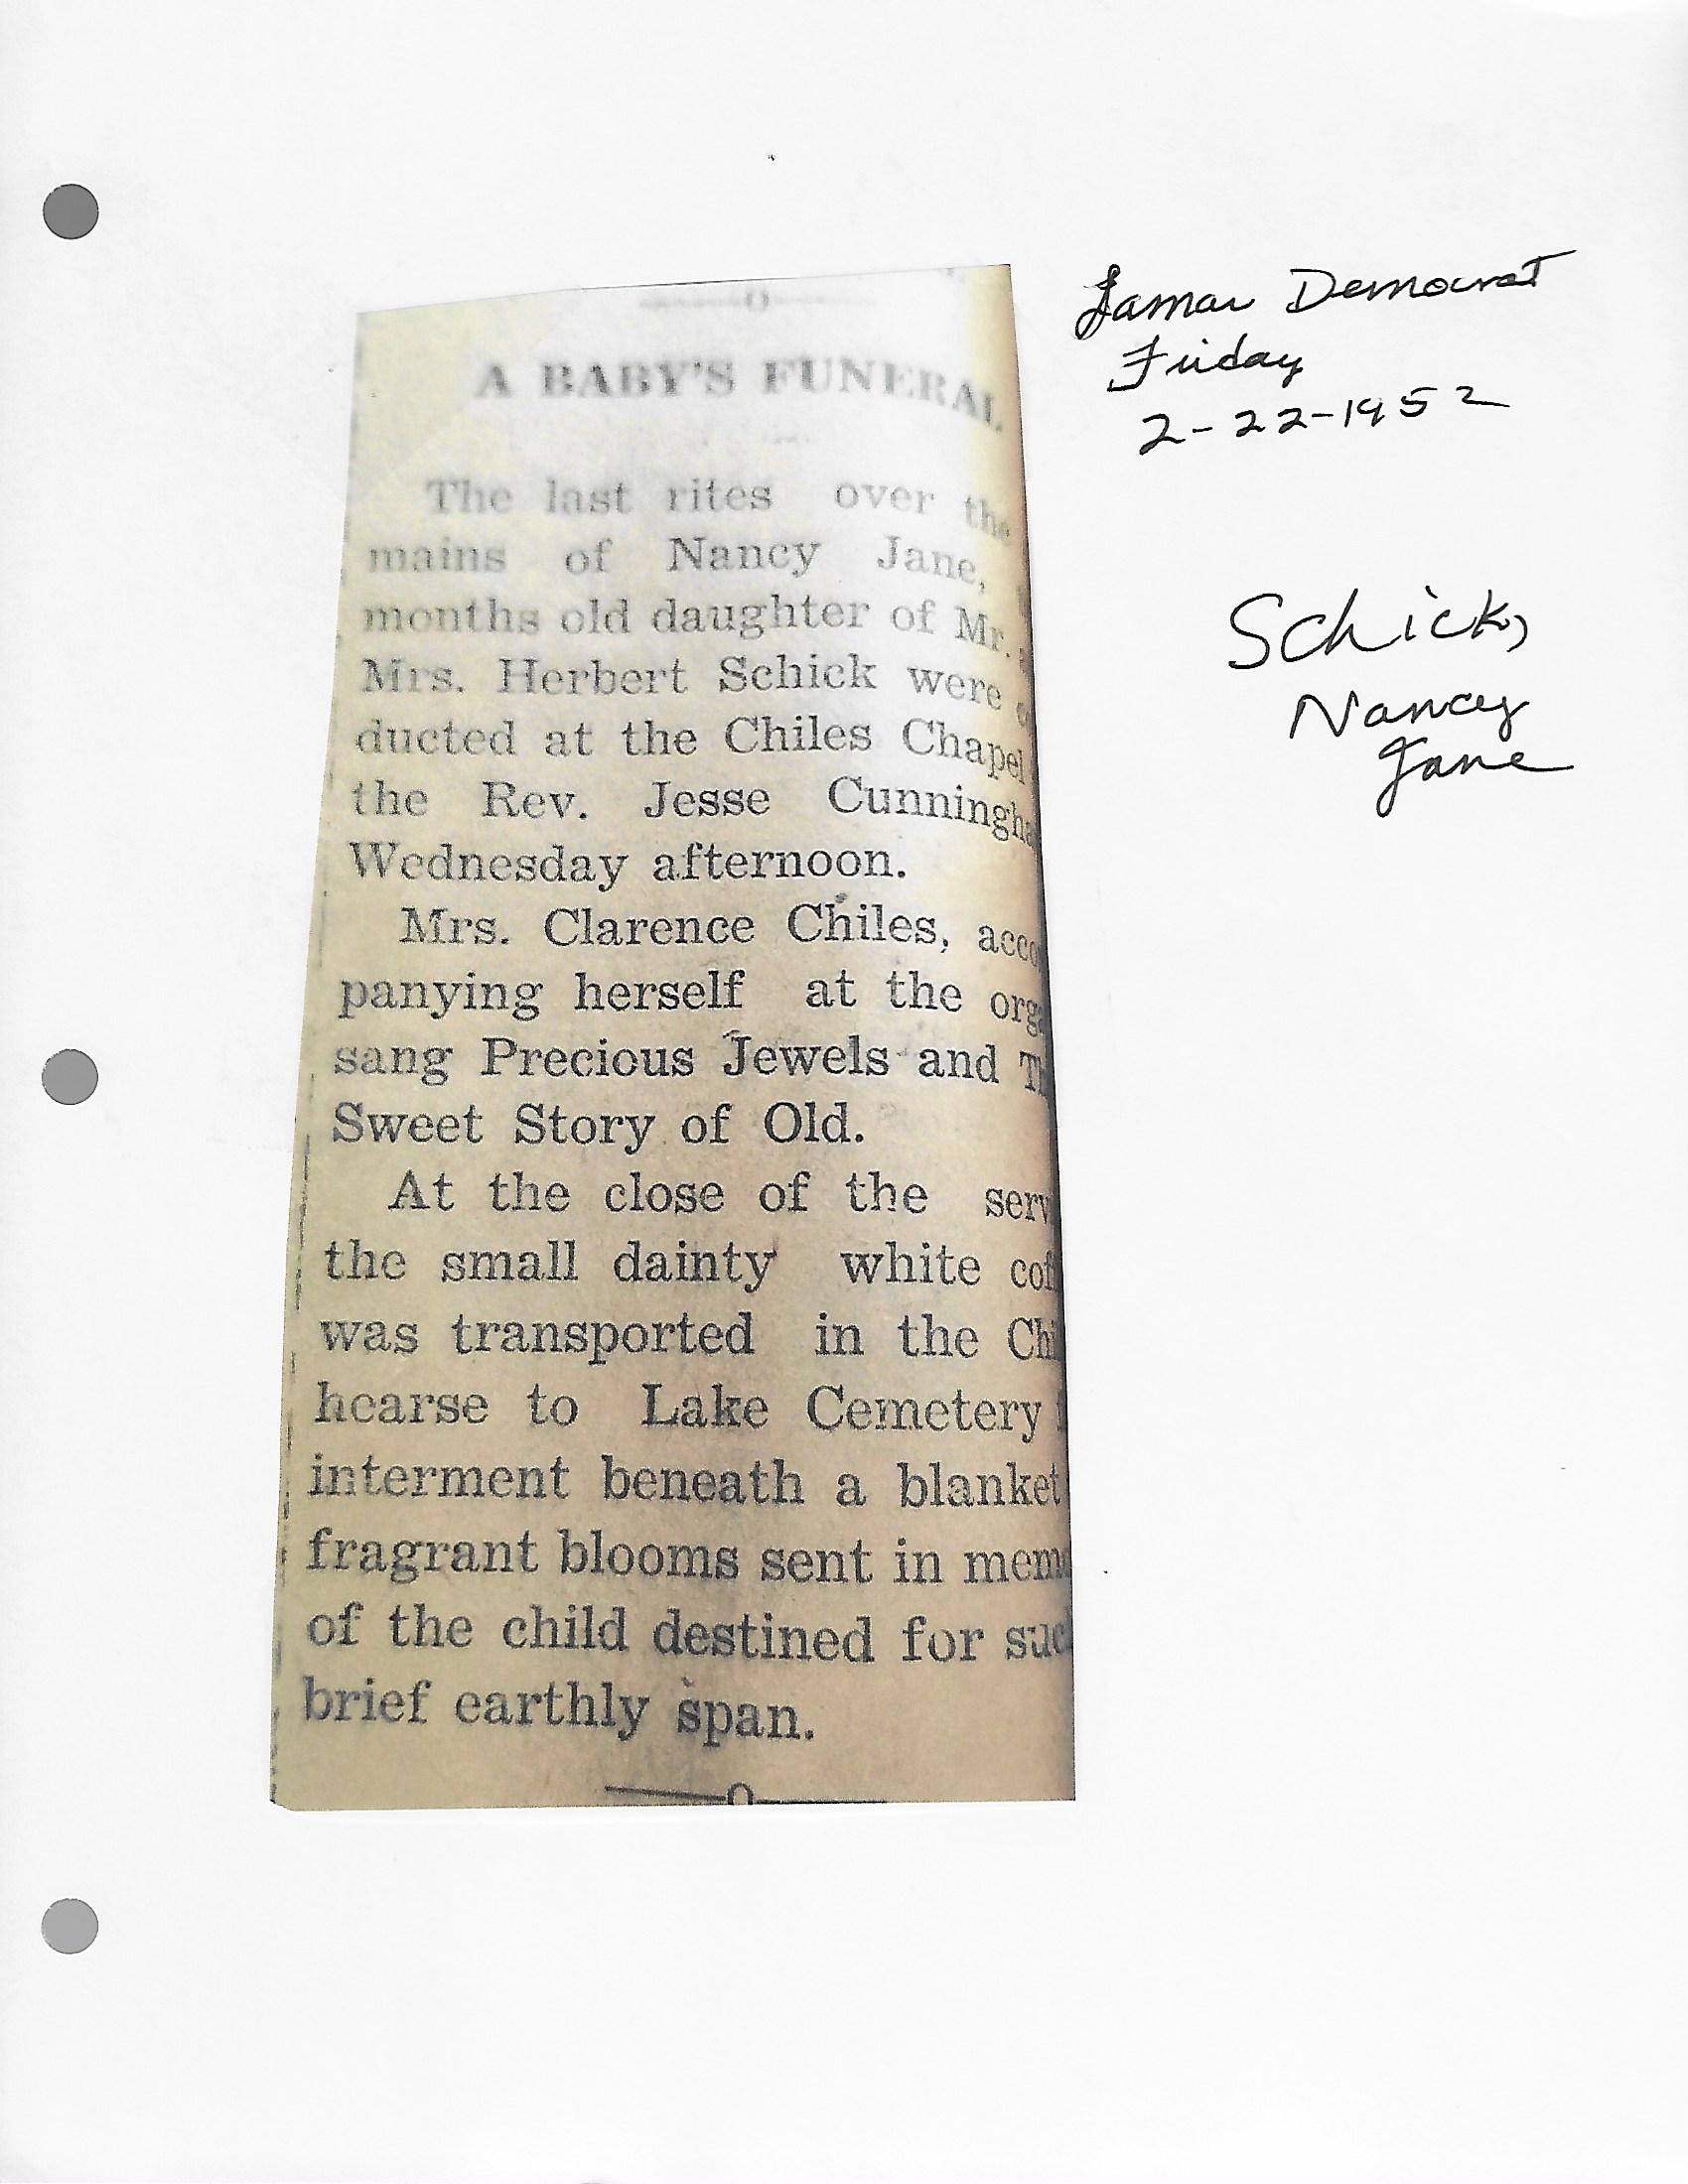 A BABY'S FUNERAL
The last rites over the
mains of Nancy Jane,
months old daughter of Mr.
Mrs. Herbert Schick were
ducted at the Chiles Chapel
the Rev. Jesse Cunningha
Wednesday afternoon.
Mrs. Clarence Chiles, acco
panying herself at the orga
sang Precious Jewels and Th
Sweet Story of Old.
At the close of the serv
the small dainty white cof
was transported in the Chi
hearse to Lake Cemetery
interment beneath a blanket
fragrant blooms sent in memo
of the child destined for suc
brief earthly span.
Lamar Democrat
Friday
2-22-1952
Schick,
Nancy
Jane